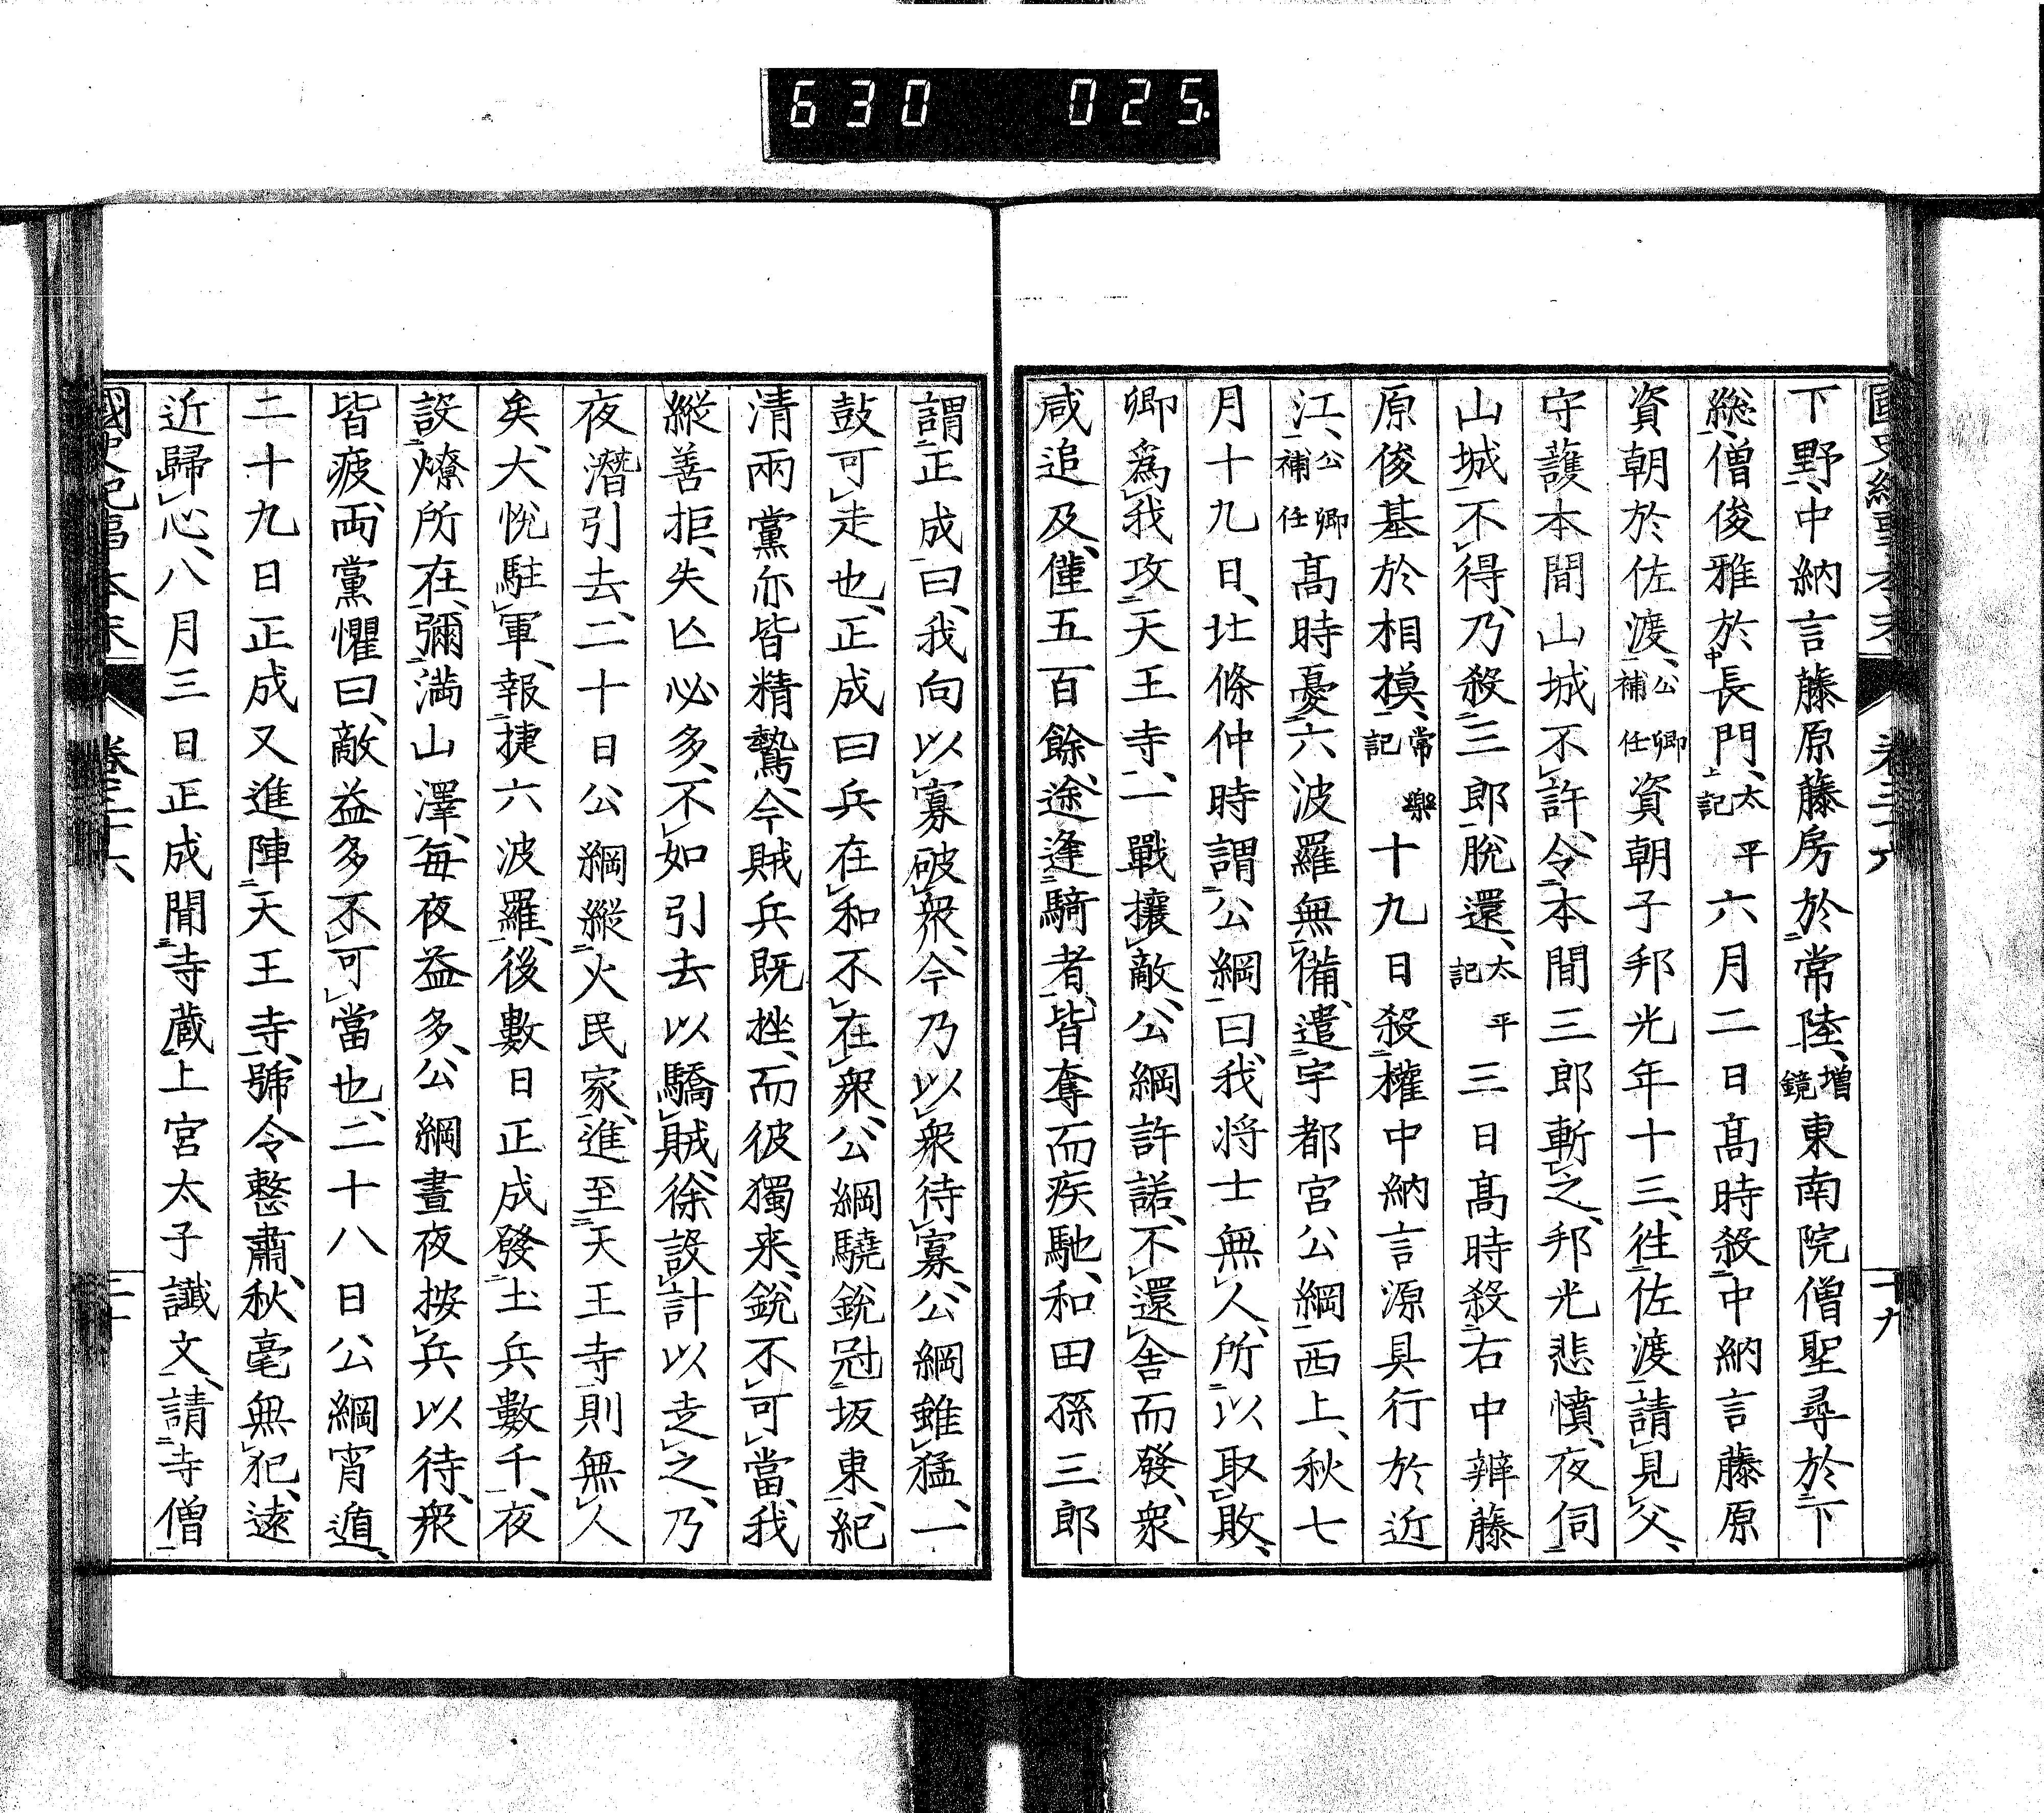 630 025
下野、中納言藤原藤房於常陸、增鏡東南院僧聖尋於下
総、僧俊雅於長門、太平記六月二日高時殺中納言藤原
資朝於佐渡、公卿補任資朝子邦光年十三、往佐渡請見父、
守護本間山城不許、令本間三郎斬之、邦光悲憤、夜伺
山城不得、乃殺三郎脫還、太平記三日高時殺右中辨藤
原俊基於相摸、常樂記十九日殺權中納言源具行於近
江、公卿補任高時憂六波羅無備、遣宇都宮公綱西上、秋七
月十九日、北條仲時謂公綱曰、我将士無人、所以取敗、
卿爲我攻天王寺、一戰攘敵、公綱許諾、不還舎而發、衆
咸追及、僅五百餘、途逢騎者、皆奪而疾馳、和田孫三郎
謂正成曰、我向以寡破衆、今乃以衆待寡、公綱雖猛、一
鼓可走也、正成曰兵在和不在衆、公綱驍銳冠坂東、紀
清兩黨亦皆精驁、今賊兵既挫、而彼獨来、銳不可當、我
縱善拒、失亾必多、不如引去以驕賊、徐設計以走之、乃
夜潛引去、二十日公綱縱火民家、進至天王寺則無人
矣、大悅駐軍、報捷六波羅、後數日正成發土兵數千、夜
設燎所在、彌滿山澤、每夜益多、公綱晝夜按兵以待、衆
皆疲、両黨懼曰、敵益多不可當也、二十八日公綱宵遁、
二十九日正成又進陣天王寺、號令整肅、秋毫無犯、遠
近歸心、八月三日正成聞寺蔵上宮太子讖文、請寺僧